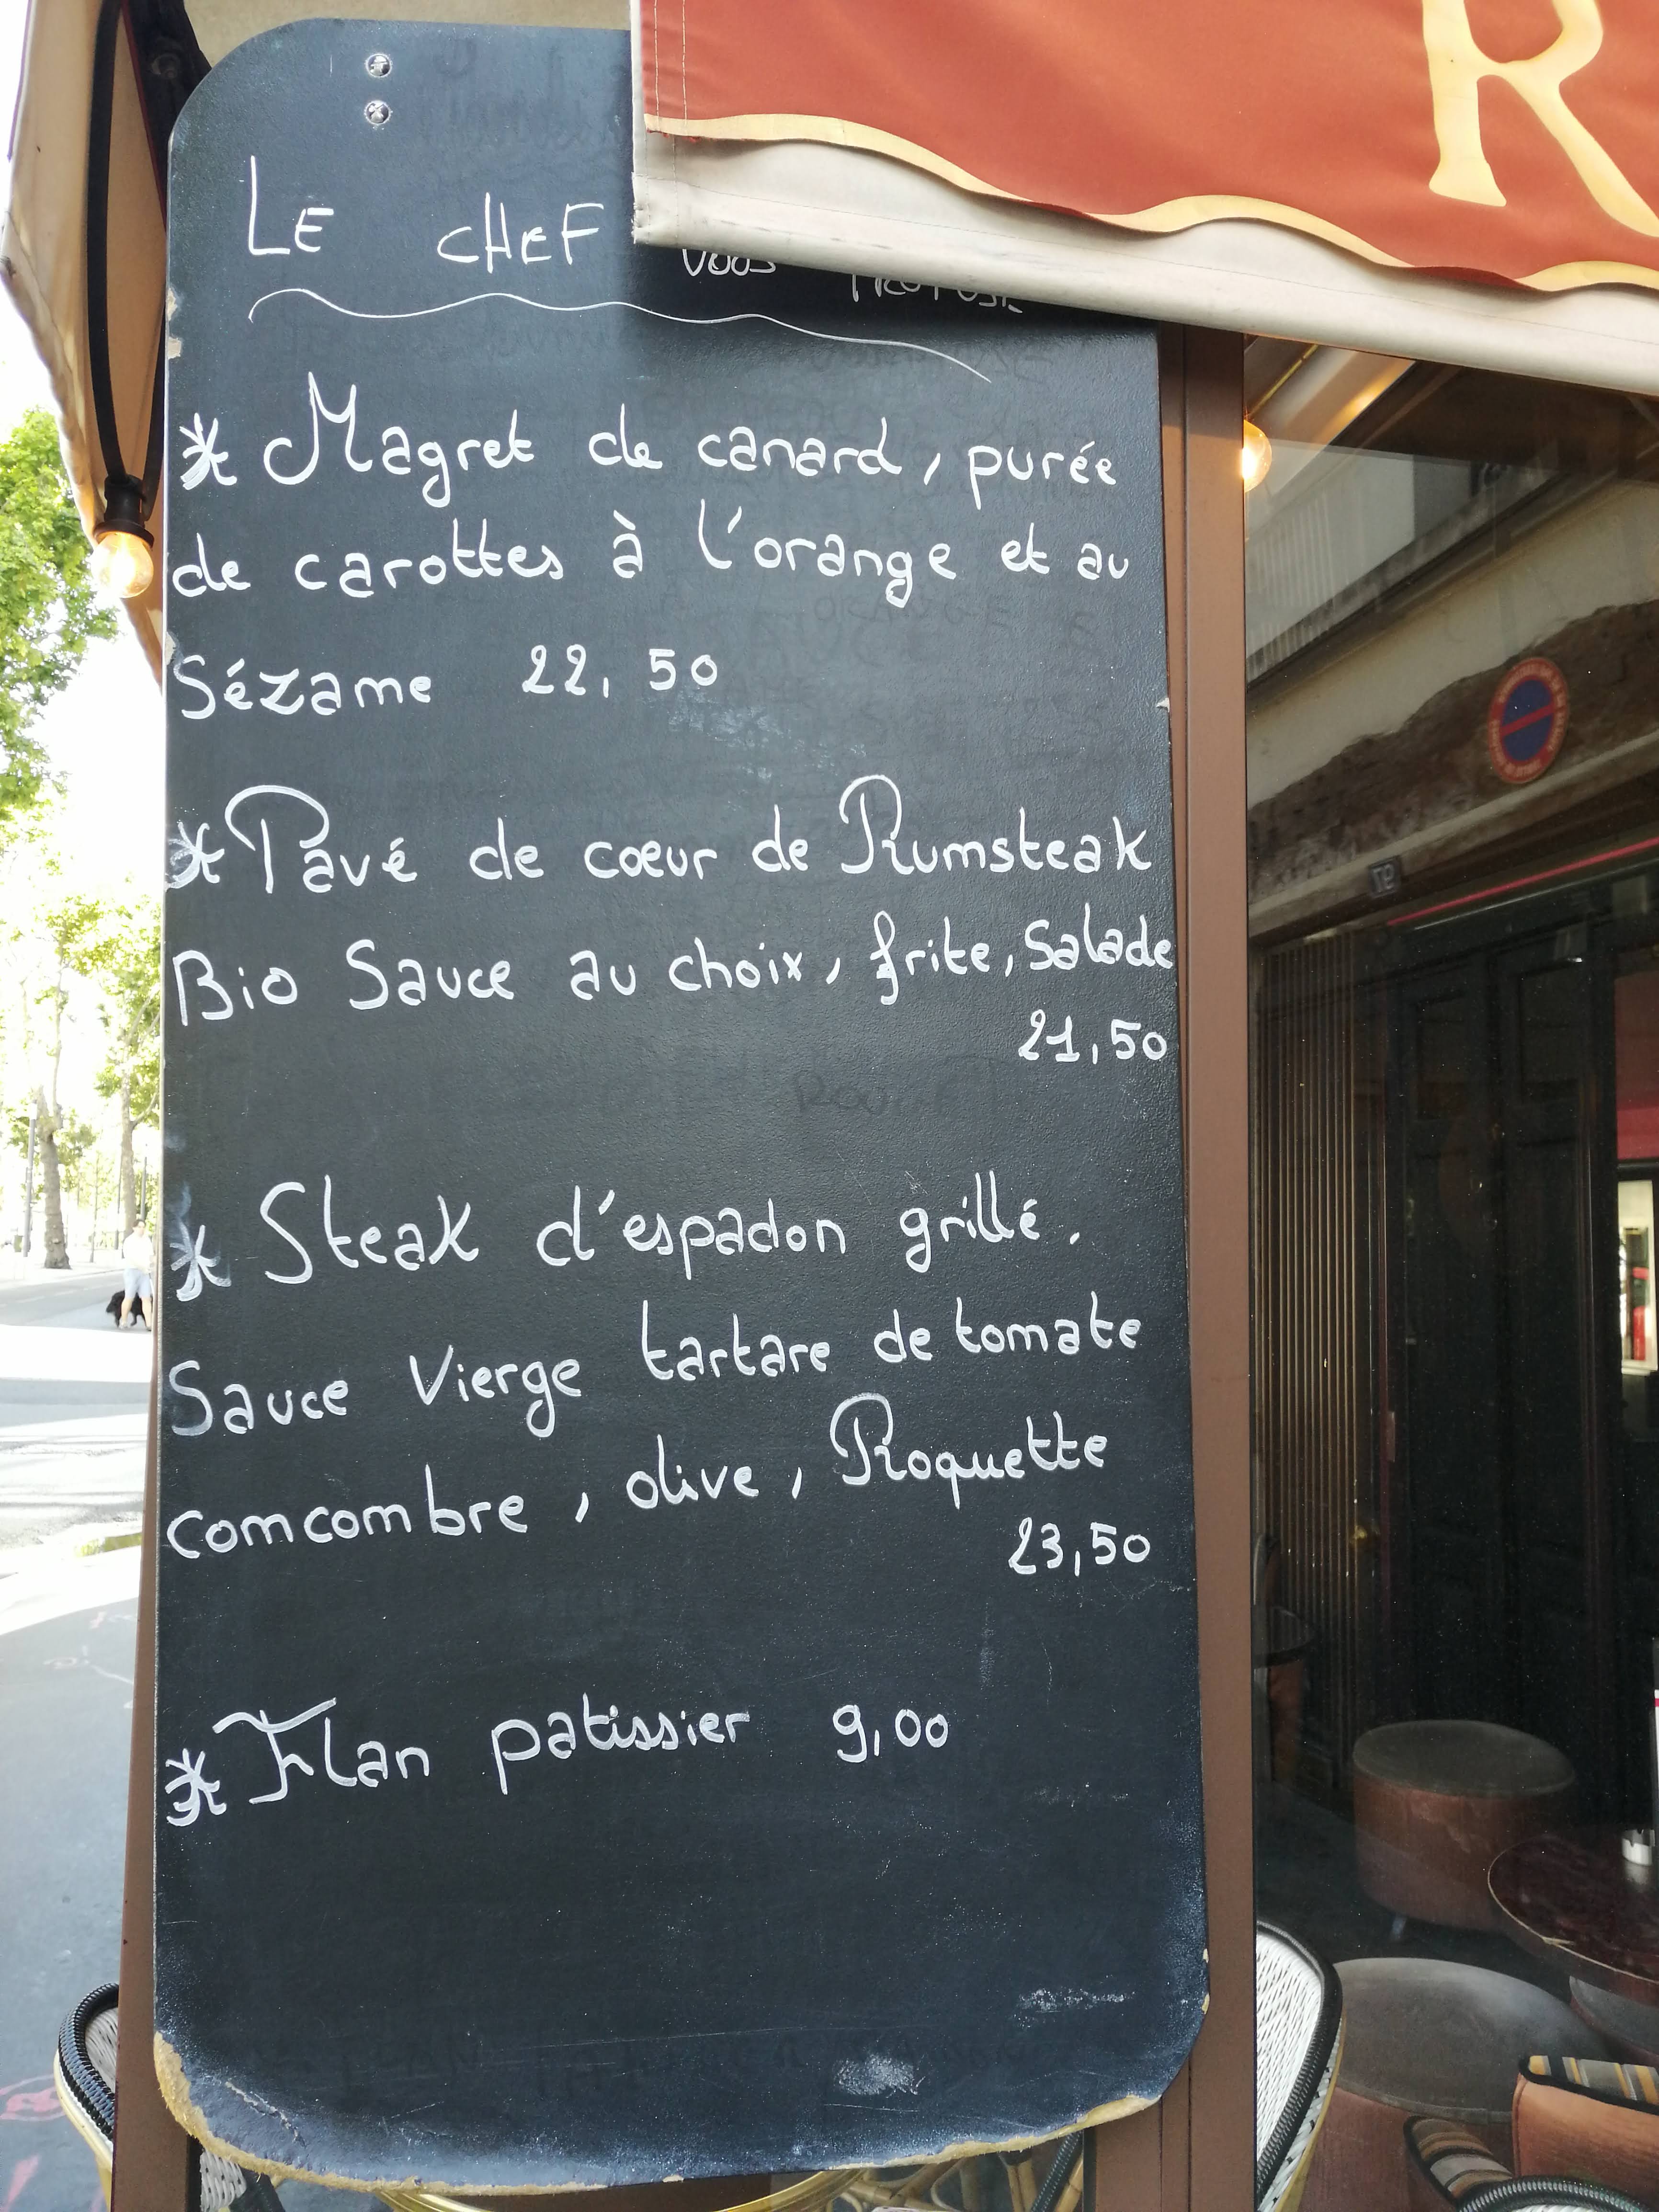 R
LE CHEF VOUS PROPOSE
* Magret de canard, purée
de carottes à l'orange et au
Sézame 22,50
* Pavé de cœur de Rumsteak
Bio Sauce au choix, frite, Salade
21,50
* Steak d'espadon grillé.
Sauce Vierge tartare de tomate
comcombre, olive, Roquette
23,50
* Flan patissier 9,00